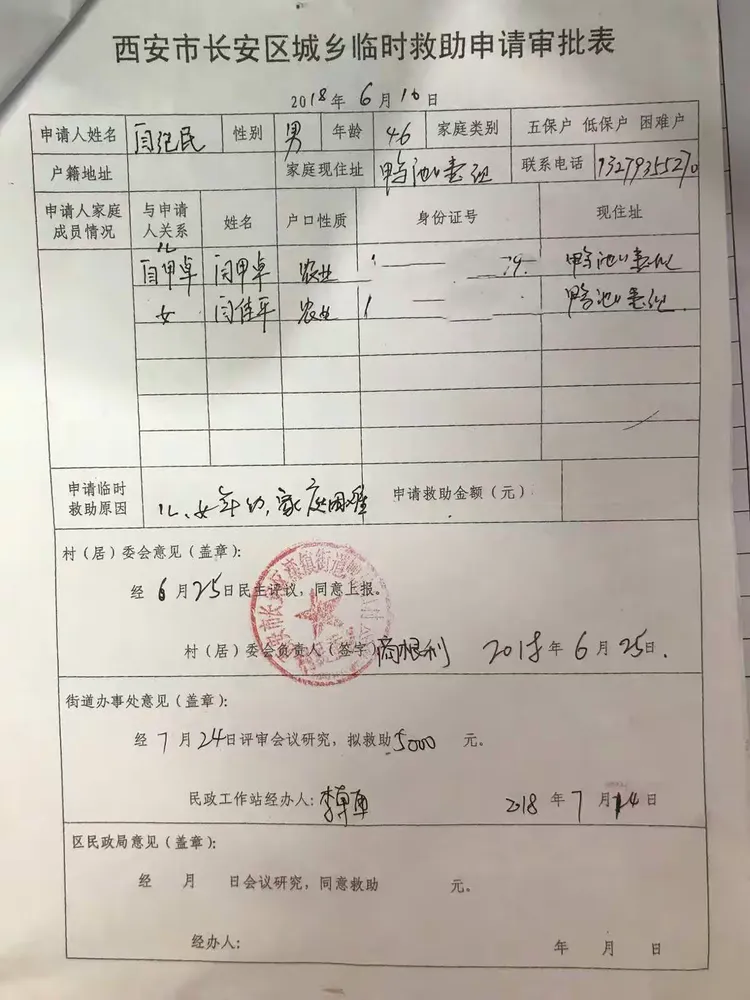 西安市长安区城乡临时救助申请审批表
2018年 6月10日
申请人姓名 闫纪民 性别 男 年龄 46 家庭类别 五保户 低保户 困难户
户籍地址 家庭现住址 鸭池口 组 联系电话 13279355270
申请人家庭成员情况 与申请人关系 姓名 户口性质 身份证号 现住址
儿 闫甲卓 闫甲卓 农业 1 79. 鸭池口
女 闫佳平 农业 1 鸭池口
申请临时救助原因 儿、女年幼,家庭困难 申请救助金额(元)
村(居)委会意见(盖章):
经 6月25日民主评议,同意上报。
村(居)委会负责人(签字) 商根利 2018年6月25日.
街道办事处意见(盖章):
经 7月24日评审会议研究,拟救助5000 元。
民政工作站经办人: 2018年7月24日
区民政局意见(盖章):
经 月 日会议研究,同意救助 元。
经办人: 年 月 日